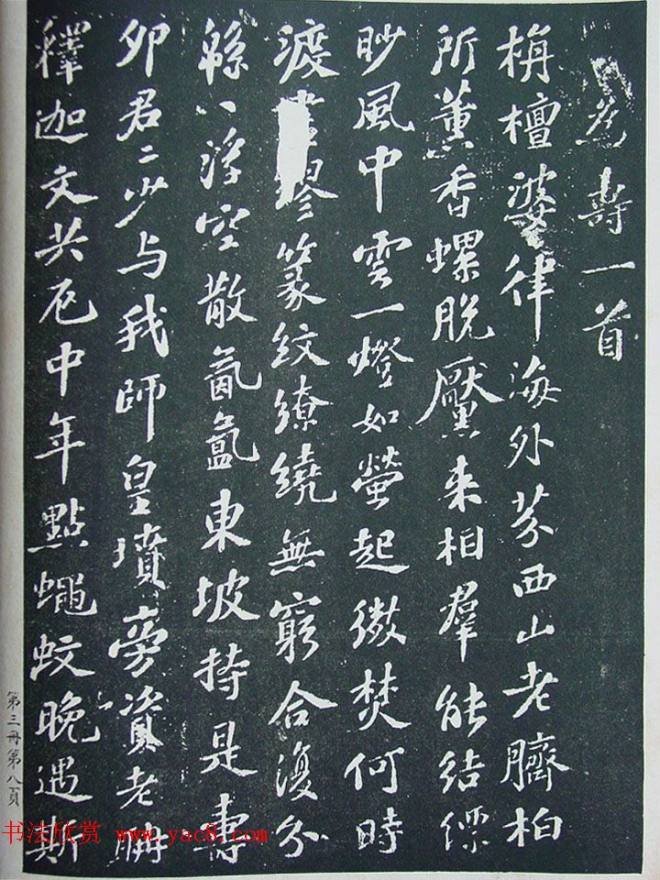 為壽一首
栴檀婆律海外芬西山老臍柏
所薰香螺脫黶来相羣能結縹
眇風中雲一燈如螢起微焚何時
渡繆篆紋繚繞無窮合復分
緜〻浮空散氤氳東坡持是壽
卯君〻少与我師皇墳旁資老聃
釋迦文共厄中年點蠅蚊晚遇斯
第三冊第八頁
书法欣赏 www.yac8.com